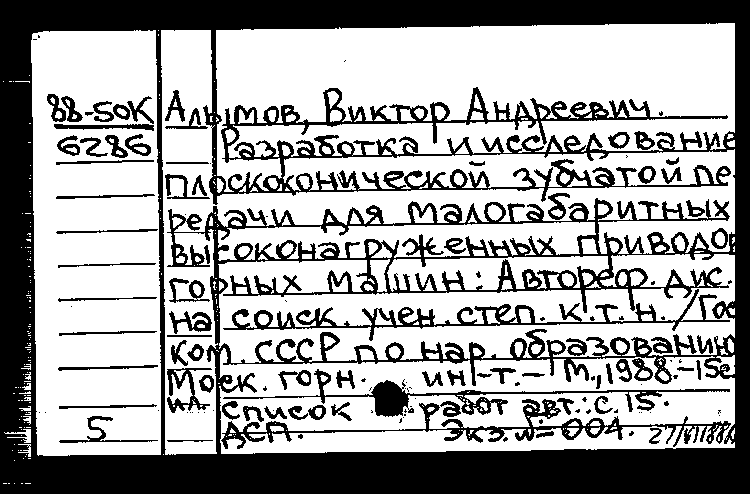 88-50К Алымов, Виктор Андреевич.
6286 Разработка и исследование
плоскоконической зубчатой пе-
редачи для малогабаритных
высоконагруженных приводов
горных машин: Автореф. дис.
на соиск. учен. степ. к.т.н. / Гос
ком. СССР по нар. образованию
Моск. горн. ин-т. - М., 1988. - 15с.
ил.
Список работ авт.: с. 15.
5 ДСП. Экз. №=004.